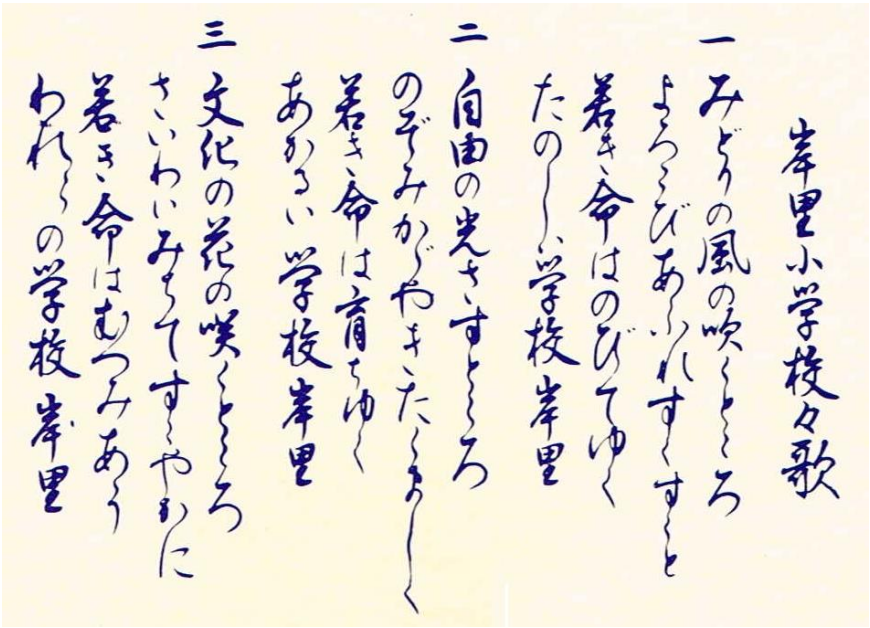 岸里小学校々歌
一 みどりの風の吹くところ
よろこびあふれすくすくと
若き命はのびてゆく
たのしい学校岸里
二 自由の光さすところ
のぞみかがやきたくましく
若き命は育ちゆく
あかるい学校岸里
三 文化の花の咲くところ
さいわいみちてすこやかに
若き命はむつみあう
われらの学校岸里